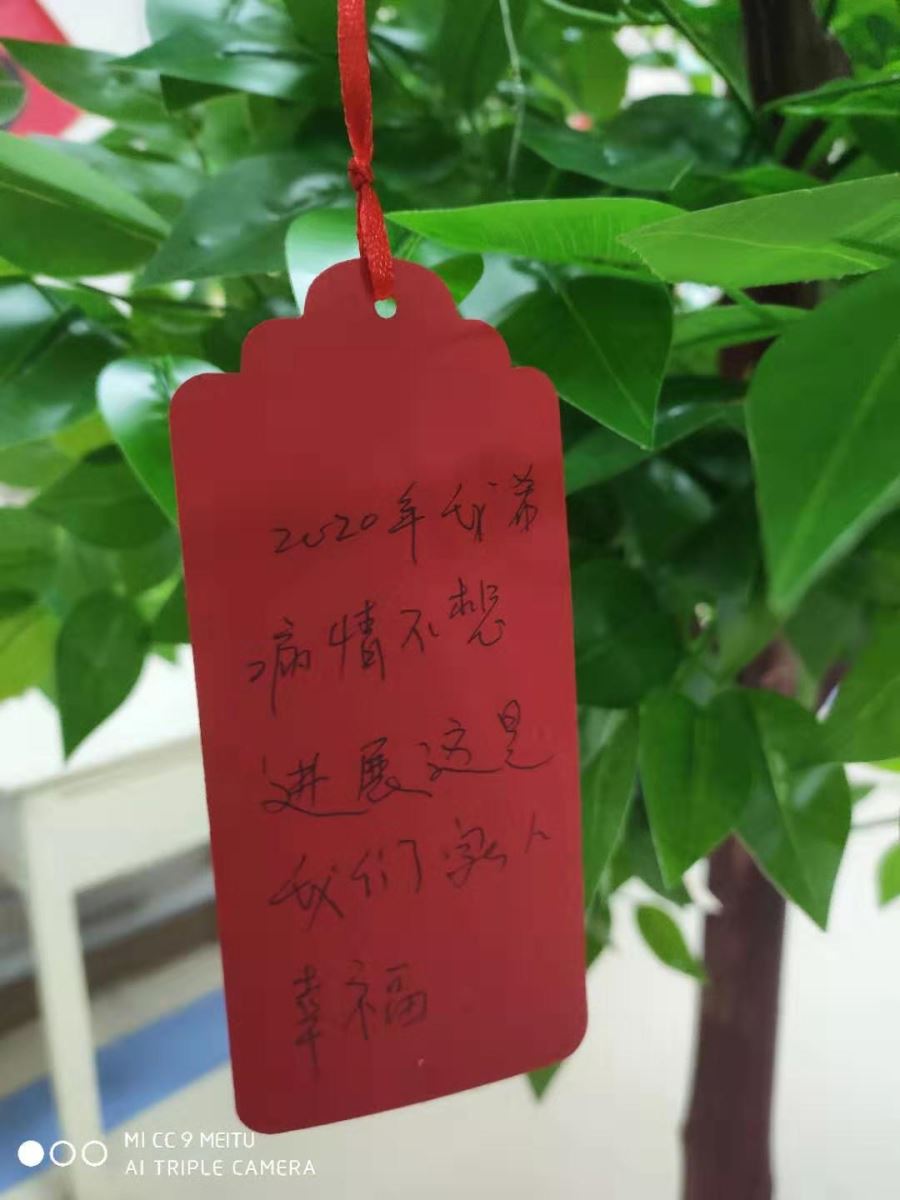 2020年我希
病情不想
进展这是
我们家人
幸福
MI CC 9 MEITU
AI TRIPLE CAMERA